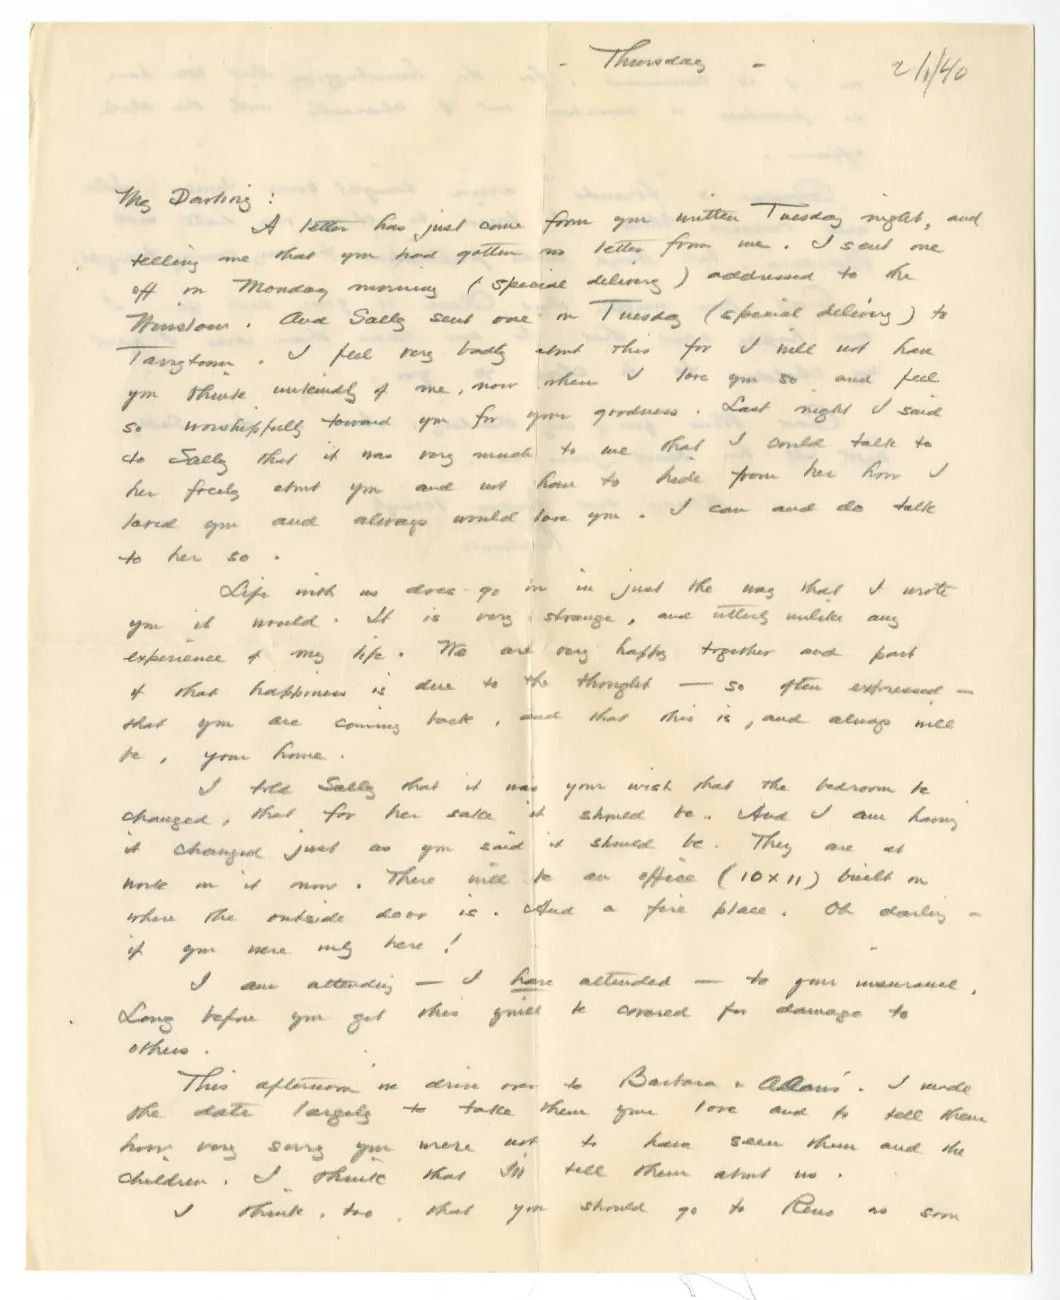 - Thursday -
2/1/40
My Darling:
A letter has just come from you written Tuesday night, and
telling me that you had gotten no letter from me. I sent one
off on Monday morning (special delivery) addressed to the
Winslow. And Sally sent one on Tuesday (special delivery) to
Tarrytown. I feel very badly about this for I will not have
you think unkindly of me, now when I love you so and feel
so worshipfully toward you for your goodness. Last night I said
to Sally that it was very much to me that I could talk to
her freely about you and not have to hide from her how I
loved you and always would love you. I can and do talk
to her so.
Life with us does go on in just the way that I wrote
you it would. It is very strange, and utterly unlike any
experience of my life. We are very happy together and part
of that happiness is due to the thought — so often expressed —
that you are coming back, and that this is, and always will
be, your home.
I told Sally that it was your wish that the bedroom be
changed, that for her sake it should be. And I am having
it changed just as you said it should be. They are at
work on it now. There will be an office (10x11) built on
where the outside door is. And a fire place. Oh darling -
if you were only here!
I am attending — I have attended — to your insurance.
Long before you get this you'll be covered for damage to
others.
This afternoon we drive over to Barbara & Alan's. I made
the date largely to take them your love and to tell them
how very sorry you were not to have seen them and the
children. I think that I'll tell them about us.
I think, too, that you should go to Reno as soon